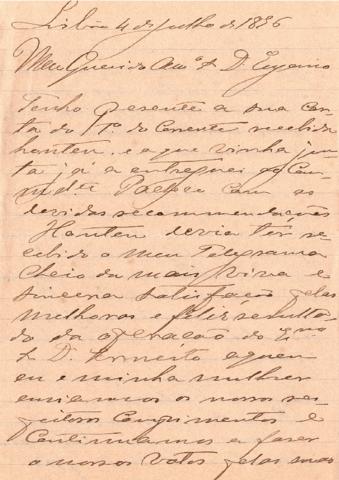 Lisbôa 4 de julho de 1896
Meu Querido Am.º D. Eugenio
Tenho presente a sua car-
ta do 1.º do Corrente recebida
hontem, e a que vinha jun-
ta ja a entreguei ao Com-
m.dte com as
devidas recommendações
Hontem devia ter re-
cebido o meu Telegrama
cheio da mais viva e
sincera satisfação pelas
melhoras e feliz resulta-
do da operação do
D. Ernesto a quem
eu e minha mulher
enviamos os nossos res-
peitosos Cumprimentos e
Continuamos a fazer
os nossos votos pelas suas